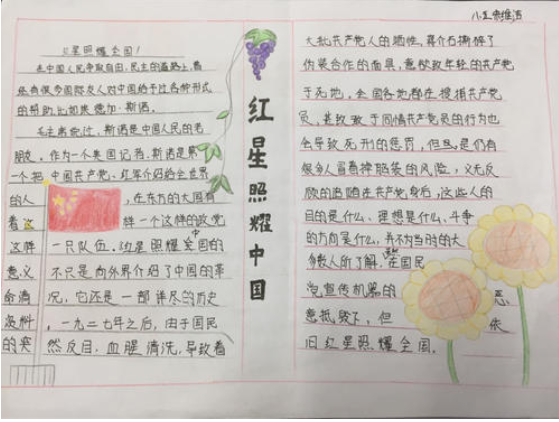 红星照耀中国
红星照耀全国!
在中国人民争取自由、民主的道路上,曾
经有很多国际友人对中国给予过各种形式
的帮助比如埃德加·斯诺。
毛主席说过,斯诺是中国人民的老
朋友。作为一个美国记者,斯诺是第
一个把中国共产党、红军介绍给全世界
的人,在东方的大国有
着这样一个这样的政党
这样一只队伍。红星照耀全国的
意义不只是向外界介绍了中国的革
命情况,它还是一部详尽的历史
资料,一九二七年之后,由于国民
的突然反目,血腥清洗,导致着
大批共产党人的牺牲,蒋介石撕碎了
伪装合作的面具,意欲致年轻的共产党
于死地,全国各地都在搜捕共产党
员,甚致敢于同情共产党员的行为也
会导致死刑的惩罚,但是,是仍有
很多人冒着掉脑袋的风险,义无反
顾的追随在共产党身后,这些人的
目的是什么、理想是什么、斗争
的方向是什么,并不为当时的大
多数人所了解,在国民
党宣传机器的恶
意抵毁下,但依
旧红星照耀全国。